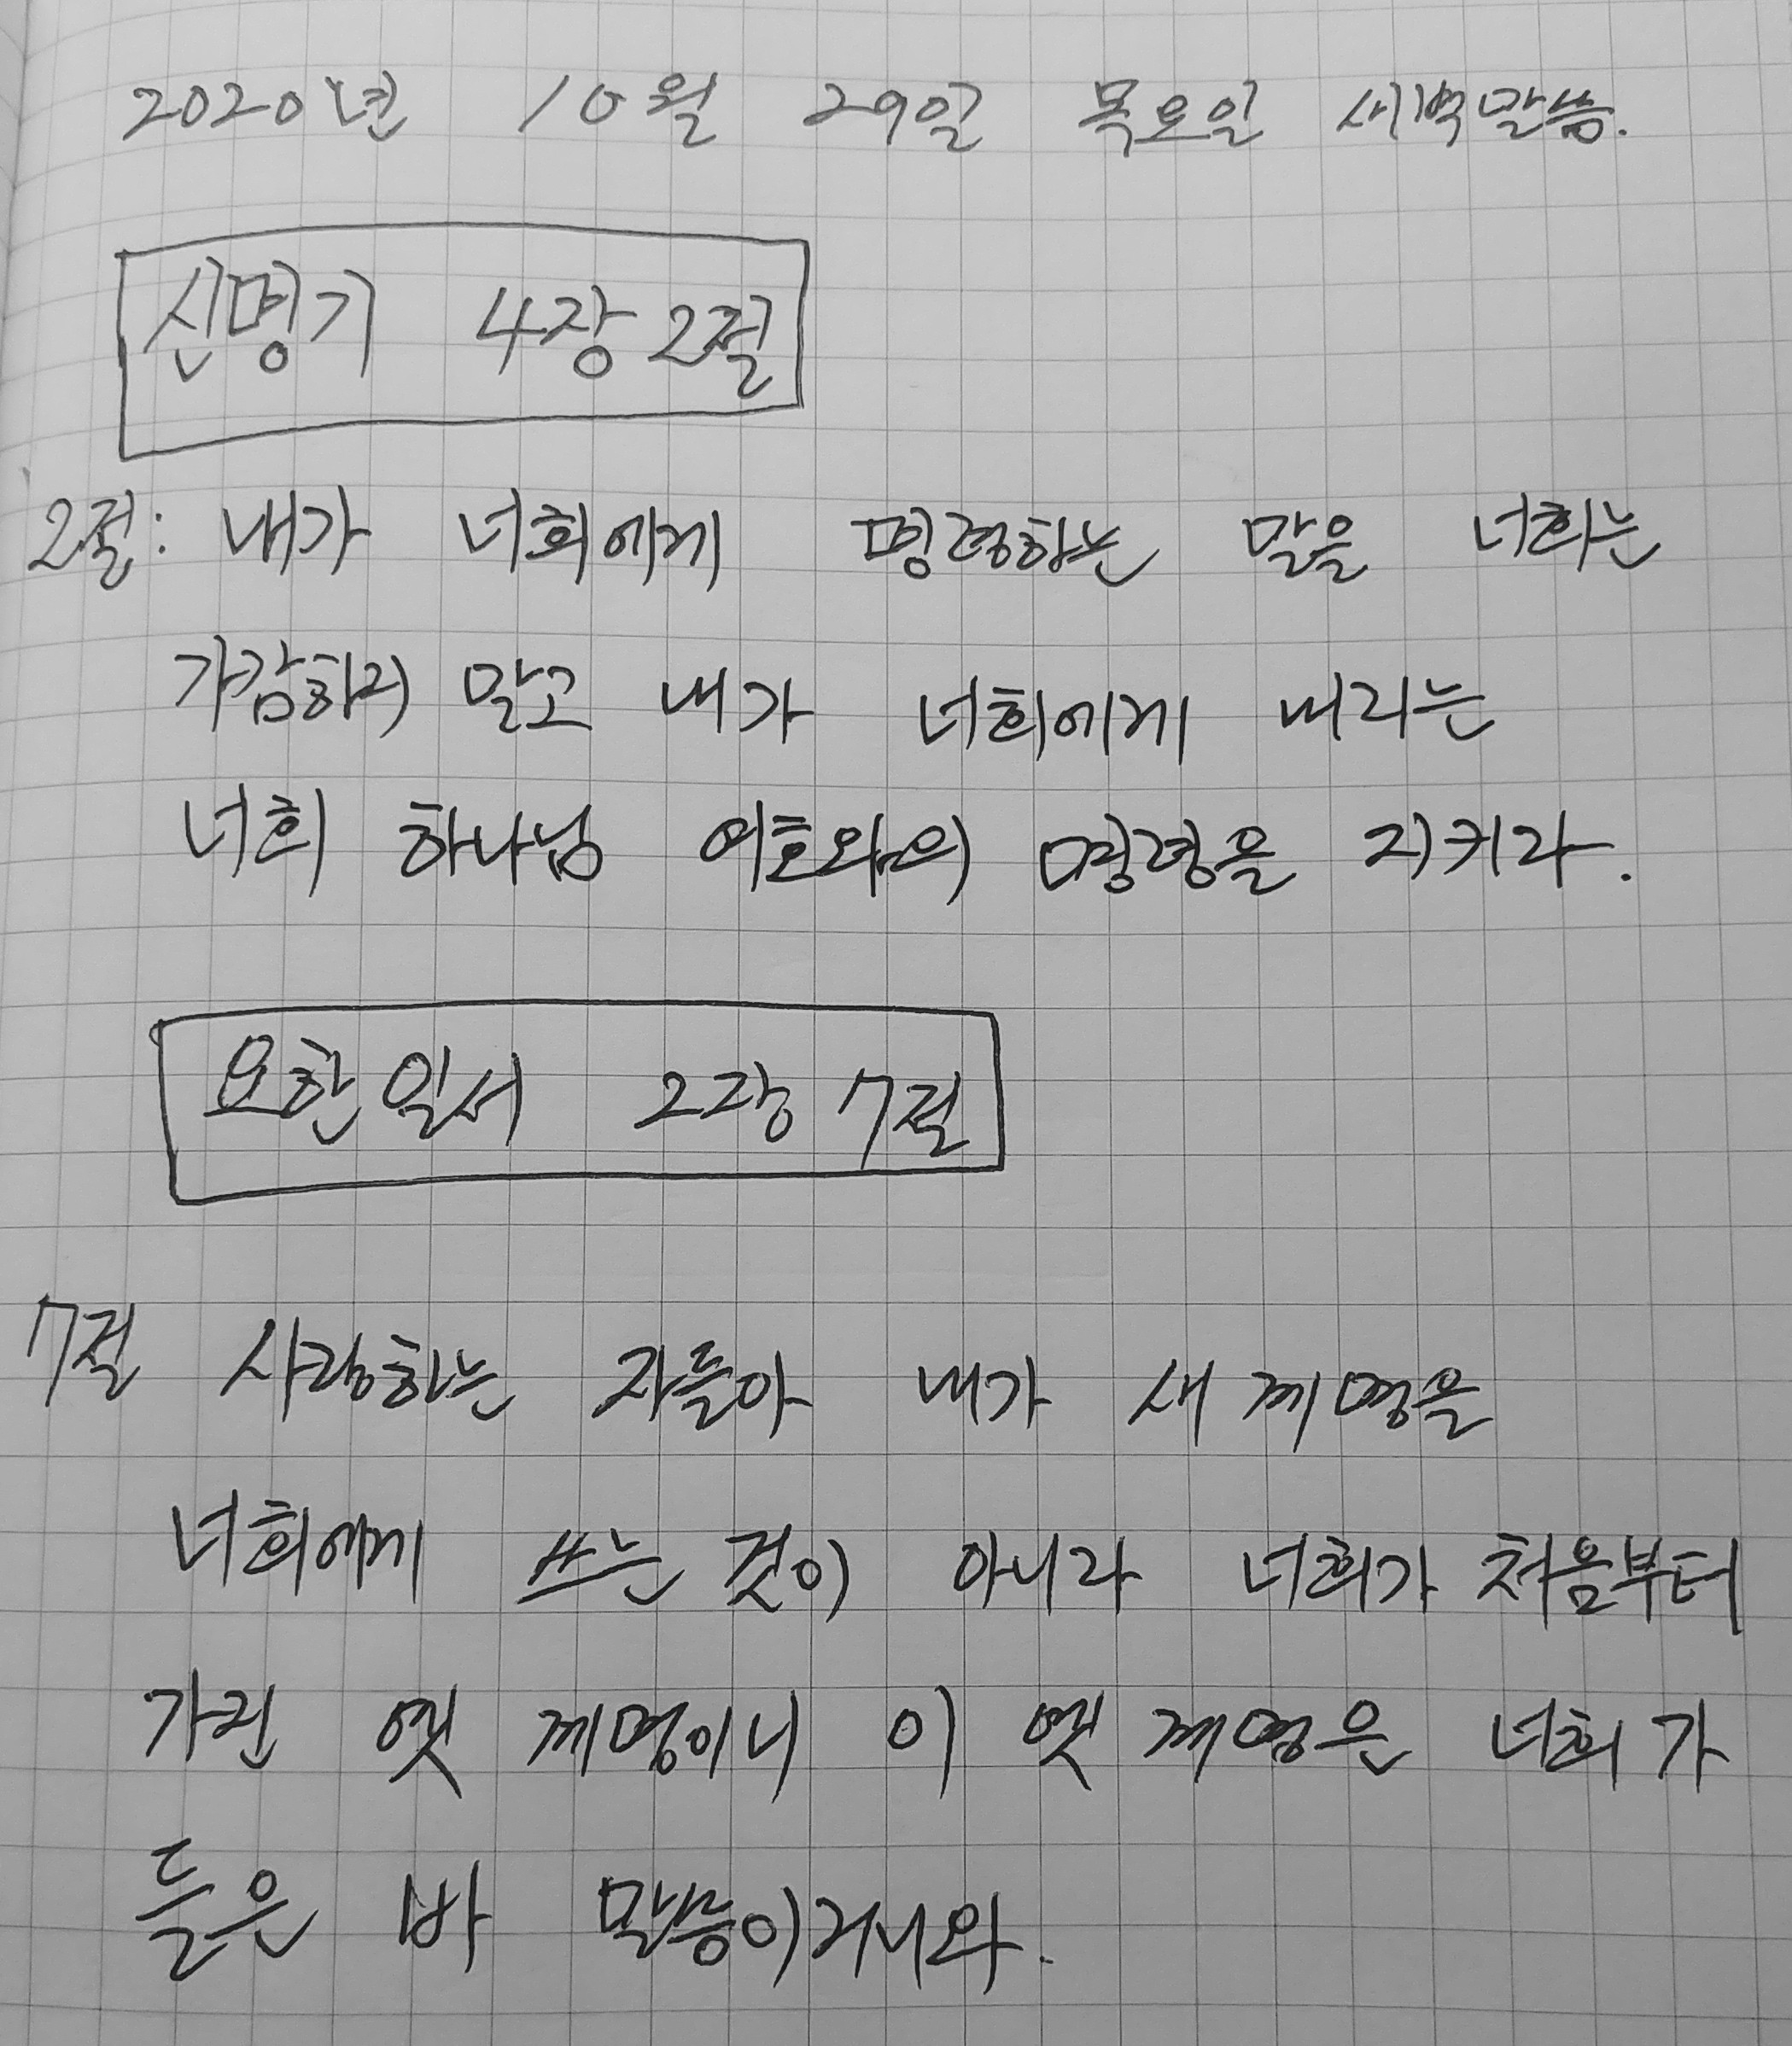 2020년 10월 29일 목요일 새벽말씀.
신명기 4장 2절
2절: 내가 너희에게 명령하는 말을 너희는
가감하지 말고 내가 너희에게 내리는
너희 하나님 여호와의 명령을 지키라.
요한일서 2장 7절
7절 사랑하는 자들아 내가 새 계명을
너희에게 쓰는 것이 아니라 너희가 처음부터
가진 옛 계명이니 이 옛 계명은 너희가
들은 바 말씀이거니와.